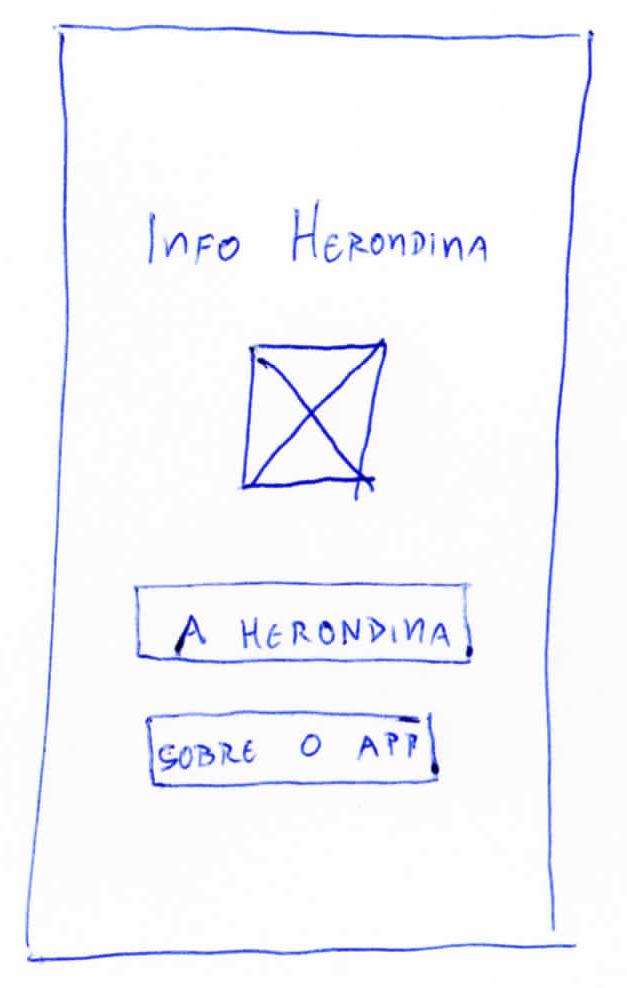 Info Herondina
A HERONDINA
SOBRE O APP